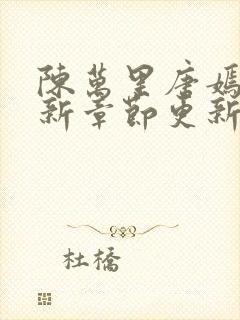 陳萬里唐嫣
新章節更新
杜橋